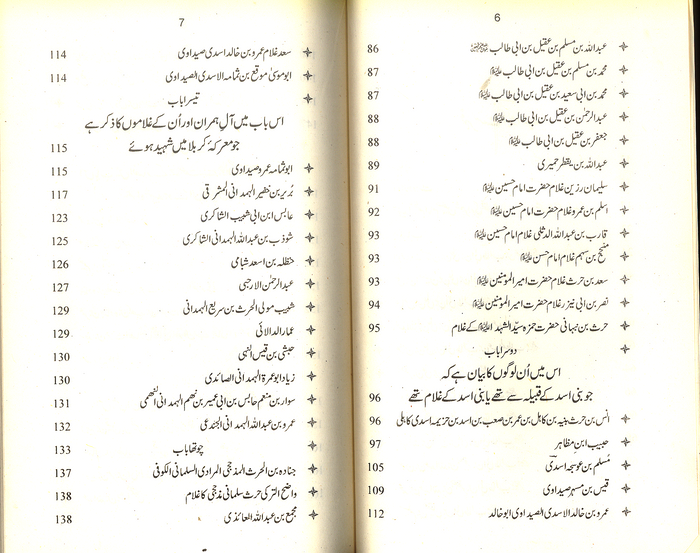 6
عبداللہ بن مسلم بن عقیل بن ابی طالب 86
محمد بن مسلم بن عقیل بن ابی طالب 87
محمد بن ابی سعید بن عقیل بن ابی طالب 87
عبدالرحمٰن بن عقیل بن ابی طالب 88
جعفر بن عقیل بن ابی طالب 88
عبداللہ بن یقطر حمیری 89
سلیمان بن رزین غلام حضرت امام حسین 91
اسلم بن عمرو غلام حضرت امام حسین 92
قارب بن عبداللہ الدئلی غلام امام حسین 93
منجح بن سہم غلام امام حسن 93
سعد بن حرث غلام حضرت امیر المومنین 93
نصر بن ابی نیزر غلام حضرت امیر المومنین 94
حرث بن نبہانی حضرت حمزہ سیّد الشہدا کے غلام 95
دوسرا باب
اس میں اُن لوگوں کا بیان ہے کہ
جو بنی اسد کے قبیلہ سے تھے یا بنی اسد کے غلام تھے 96
انس بن حرث بنیہ بن کاہل بن عمر بن صعب بن اسد بن حزیمہ اسدی کاہلی 96
حبیب ابن مظاہر 97
مُسلم بن عوسجہ اسدی 105
قیس بن مسہر صیداوی 109
عمرو بن خالد الاسدی الصیداوی ابوخالد 112
7
سعد غلام عمرو بن خالد اسدی صیداوی 114
ابوموسیٰ موقع بن ثمامہ الاسدی الصیداوی 114
تیسرا باب
اس باب میں آلِ ہمران اور اُن کے غلاموں کا ذکر ہے
جو معرکۂ کربلا میں شہید ہوئے 115
ابوثمامہ عمرو صیداوی 115
بُریر بن خضیر الہمدانی المشرقی 117
عابس ابن ابی شعیب الشاکری 123
شوذب بن عبداللہ الہمدانی الشاکری 125
حنظلہ بن اسعد شبامی 126
عبدالرحمٰن الارحبی 127
شبیب مولی الحرث بن سریع الہمدانی 129
عمار الدالانی 129
حبشی بن قیس النہمی 130
زیاد ابوعمرۃ الہمدانی الصائدی 130
سوار بن منعم حابس بن ابی عمیر بن نھم الہمدانی النھمی 131
عمرو بن عبداللہ الہمدانی الجندعی 132
چوتھا باب 133
جنادہ بن الحرث المذحجی المرادی السلمانی الکوفی 137
واضح الترکی حرث سلمانی مذحجی کا غلام 138
مجمع بن عبداللہ العائذی 138